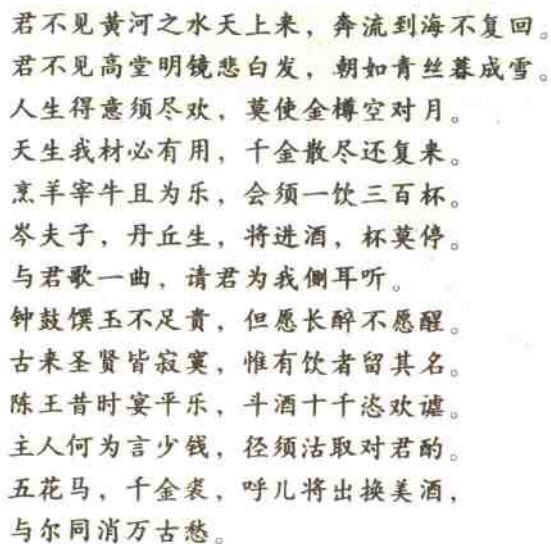 君不见黄河之水天上来，奔流到海不复回。
君不见高堂明镜悲白发，朝如青丝暮成雪。
人生得意须尽欢，莫使金樽空对月。
天生我材必有用，千金散尽还复来。
烹羊宰牛且为乐，会须一饮三百杯。
岑夫子，丹丘生，将进酒，杯莫停。
与君歌一曲，请君为我侧耳听。
钟鼓馔玉不足贵，但愿长醉不愿醒。
古来圣贤皆寂寞，惟有饮者留其名。
陈王昔时宴平乐，斗酒十千恣欢谑。
主人何为言少钱，径须沽取对君酌。
五花马，千金裘，呼儿将出换美酒，
与尔同消万古愁。